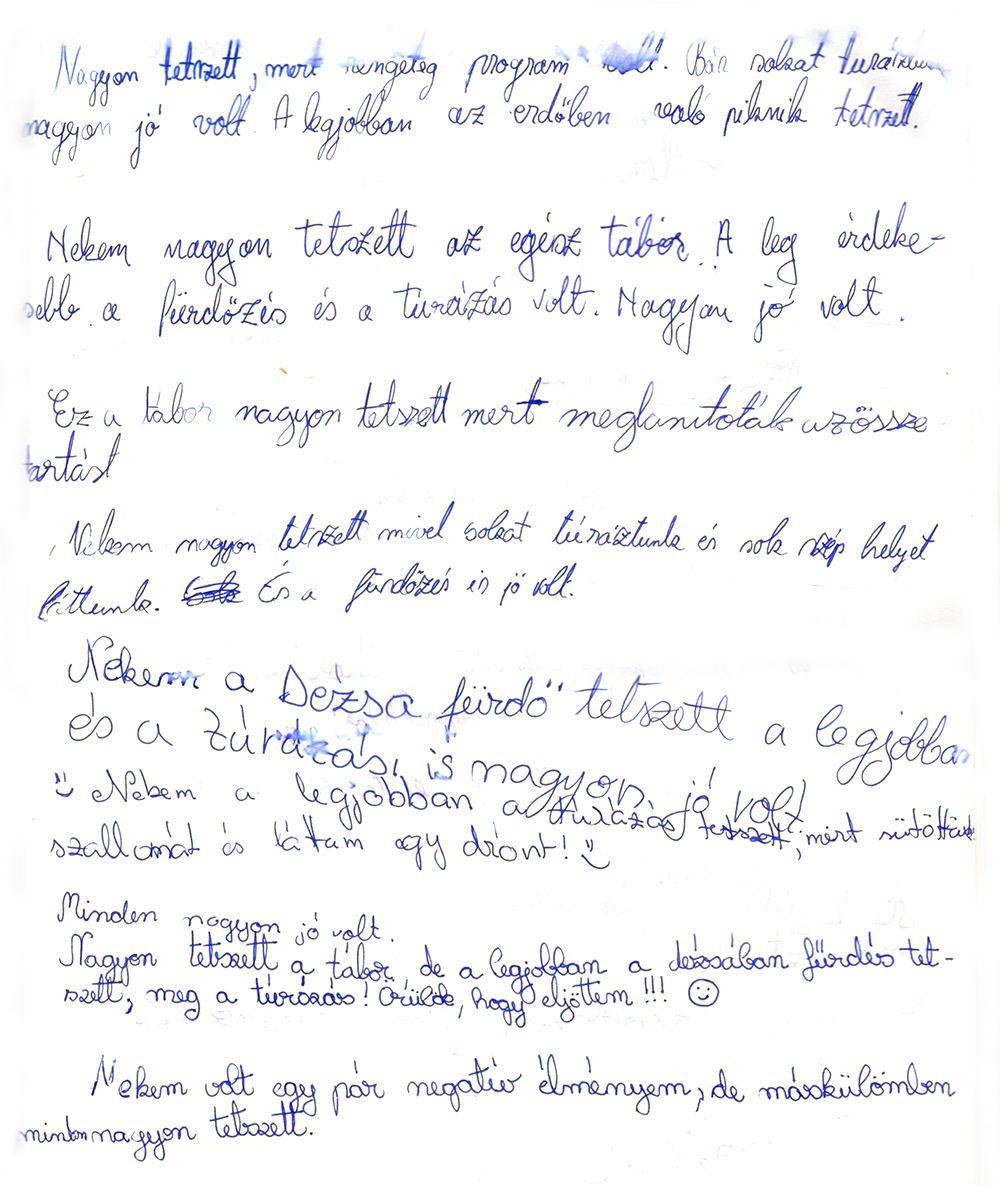 Nagyon tetszett, mert rengeteg program volt. Bár sokat turáztunk
nagyon jó volt. A legjobban az erdőben való piknik tetszett.
Nekem nagyon tetszett az egész tábor. A leg érdeke-
sebb a fürdőzés és a turázás volt. Nagyon jó volt.
Ez a tábor nagyon tetszett mert meglanitoták azössze
tartást
Nekem nagyon tetszett mivel sokat túráztunk és sok szép helyet
láttunk. És a fürdőzés is jó volt.
Nekem a Dézsa fürdő tetszett a legjobban
és a túrázás, is nagyon jó volt
Nekem a legjobban a túrázás tetszett, mert sütöttünk
szallonát és látam egy drónt!
Minden nagyon jó volt.
Nagyon tetszett a tábor, de a legjobban a dézsában fürdés tet-
szett, meg a túrázás! Örülök, hogy eljöttem!!! ☺
Nekem volt egy pár negatív élményem, de máskülömben
minden nagyon tetszett.